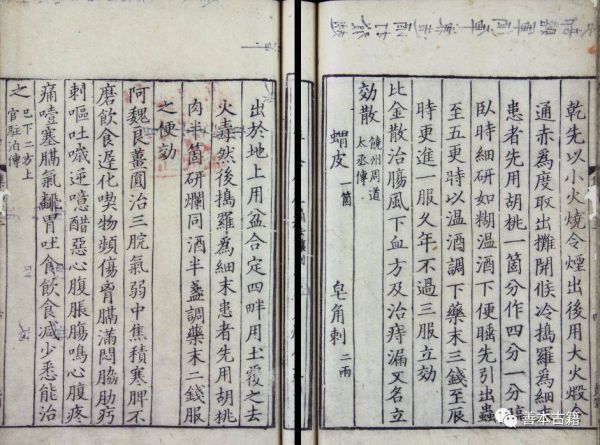 乾先以小火燒令煙出後用大火煅
通赤為度取出攤開候冷搗羅為細
患者先用胡桃一箇分作四分一分臨
臥時細研如糊温酒下便睡先引出蟲
至五更時以温酒調下藥末三錢至辰
時更進一服久年不過三服立効
比金散治腸風下血方及治痔漏又名立
効散 饒州周道太丞傳
蝟皮 一箇 皂角刺 二兩
出於地上用盆合定四畔用土覆之去
火毒然後搗羅為細末患者先用胡桃
肉半箇研爛同酒半盞調藥末二錢服
之便効
阿魏良薑圓治三脘氣弱中焦積寒脾不
磨飲食遲化喫物頻傷胷膈滿悶脇肋疞
刺嘔吐噦逆噫醋惡心腹脹腸鳴心腹疼
痛噎塞膈氣翻胃吐食飲食減少悉能治
之 已下二方上官駐泊傳
善本古籍